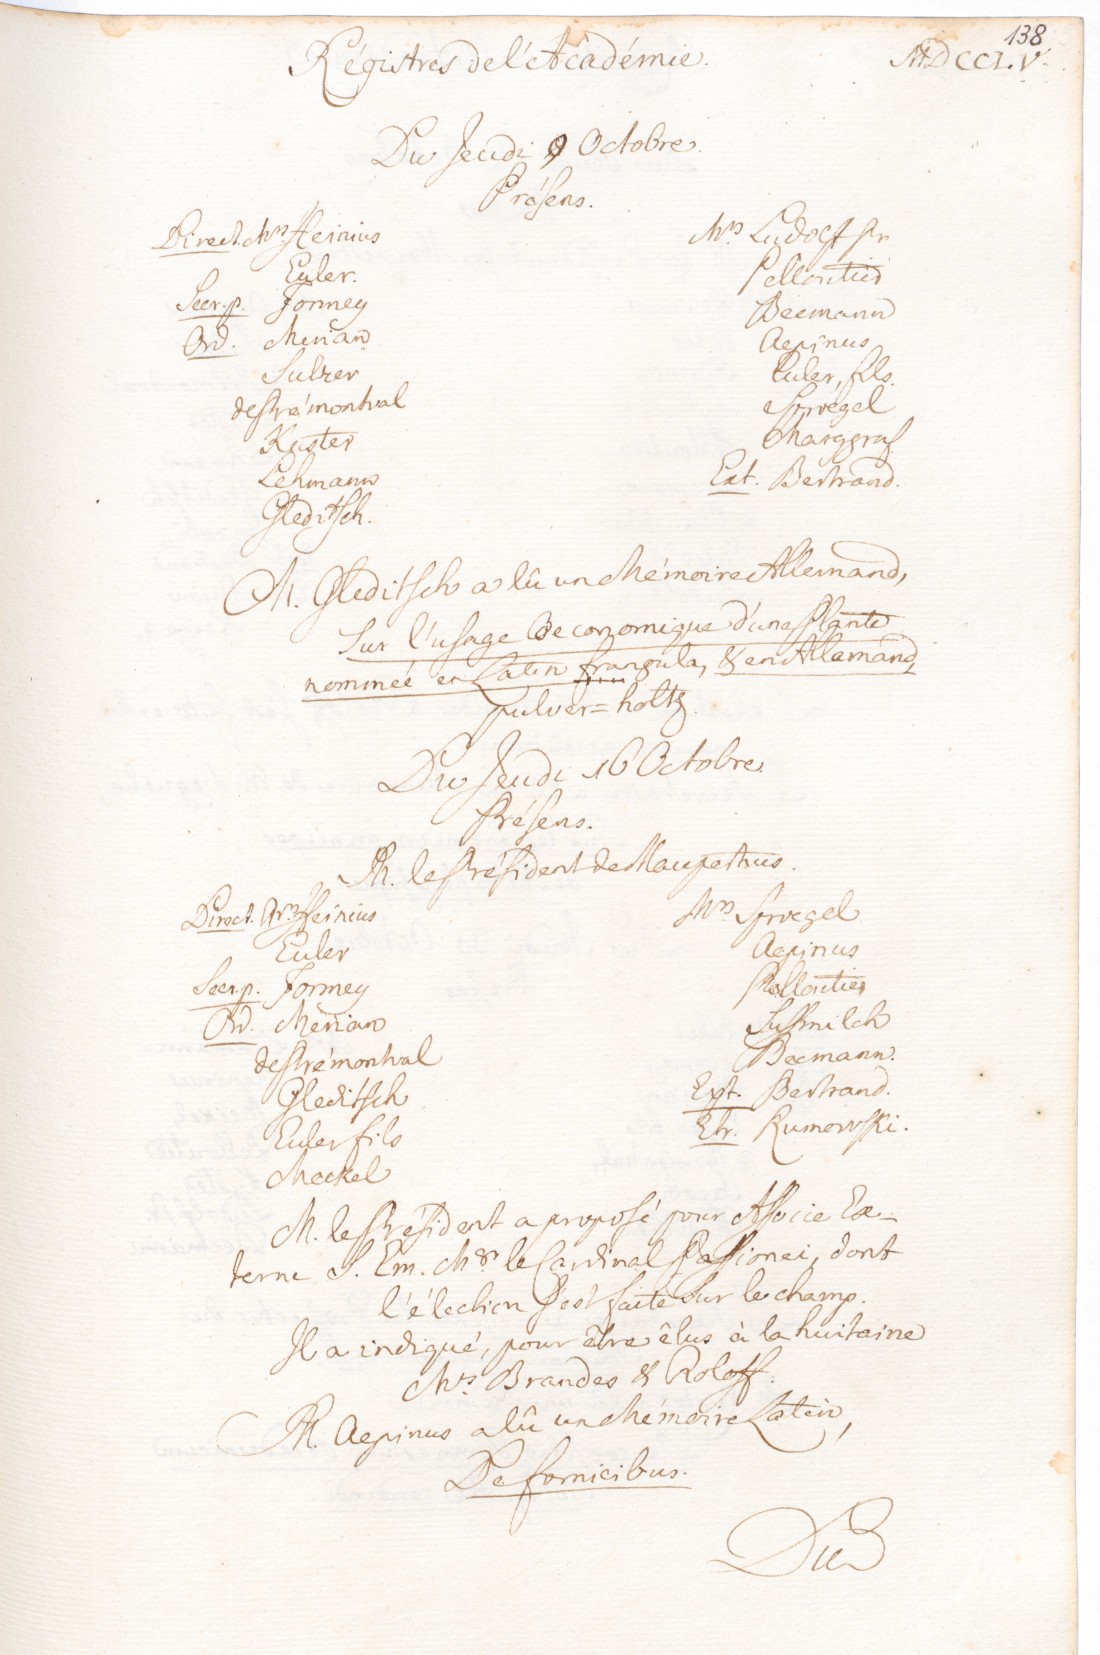 138
Régistres de l'Académie.
MDCCLV.
Du Jeudi 9 Octobre.
Présens.
Direct. Mrs Heinius
Euler.
Secr. p. Formey
Ord. Merian
Sulzer
de Prémontval
Kuster
Lehmann
Gleditsch.
Mrs Ludolff sr
Pelloutier
Becmann
Aepinus
Euler, fils.
Sproegel
Marggraf
Ext. Bertrand.
M. Gleditsch a lû un Mémoire Allemand,
sur l'usage Oeconomique d'une Plante
nommée en Latin frangula, & en Allemand,
pulver=holtz.
Du Jeudi 16 Octobre.
Présens.
M. le Président de Maupertuis.
Direct. Mrs Heinius
Euler
Secr. p. Formey
Ord. Mérian
de Prémontval
Gleditsch
Euler fils
Meckel
Mrs Sproegel
Aepinus
Pelloutier
Susmilch
Becmann.
Ext. Bertrand.
Etr. Rumovski.
M. le Président a proposé pour Associe Ex-
terne S. Em. Mgr le Cardinal Passionei, dont
l'élection s'est faite sur le champ.
Il a indiqué, pour être êlus à la huitaine
Mrs Brandes & Roloff.
M. Aepinus a lû un Mémoire Latin,
De fornicibus.
Du